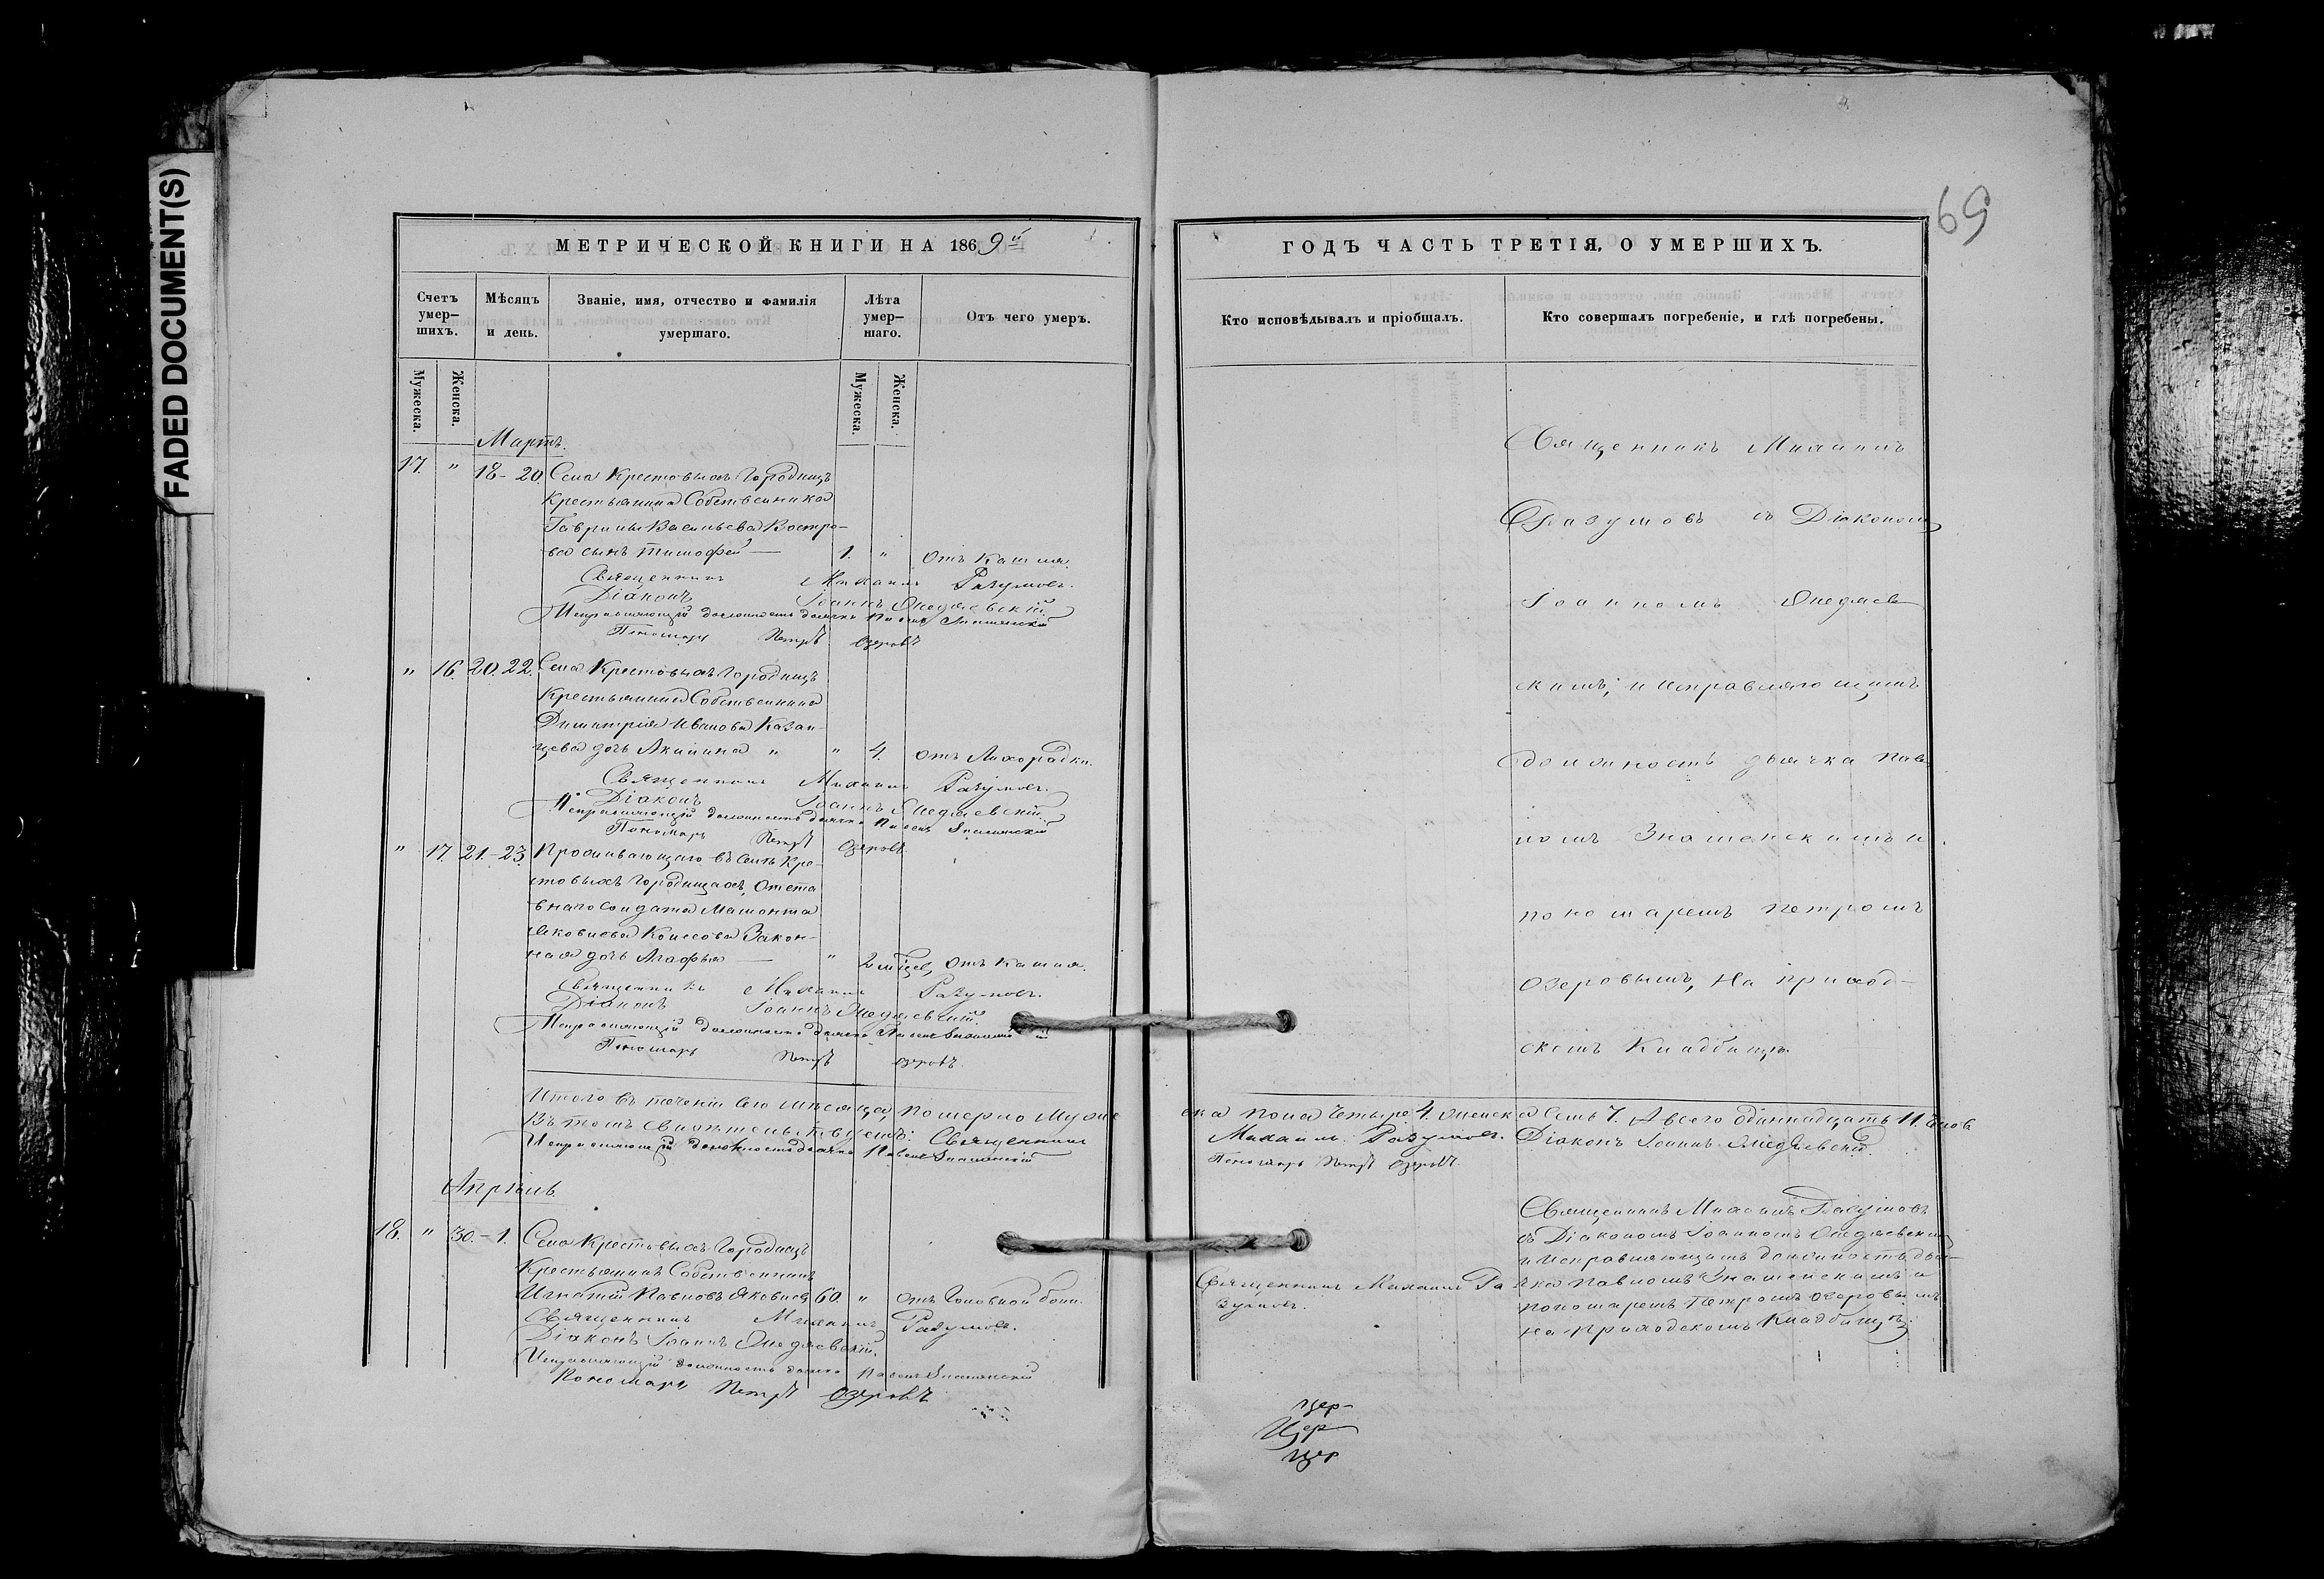 FADED DOCUMENT(S)
69
МЕТРИЧЕСКОЙ КНИГИ НА 1869й
Счетъ умер-шихъ.
Мѣсяцъ и день.
Званіе, имя, отчество и фамилія умершаго.
Лѣта умер-шаго.
Отъ чего умеръ.
Мужеска.
Женска.
Мужеска.
Женска.
Мартъ.
17. " 18-20 Села Крестовыхъ Городищъ
Крестьянина Собственника
Гаврилы Васильева Востро-
ва сынъ Тимофей — 1. " Отъ Кашля.
Священникъ Михаилъ Разумовъ.
Діаконъ Іоаннъ
Исправляющій должность дьячка Павелъ Знаменскій
Пономарь Петръ Озеровъ
" 16. 20. 22. Села Крестовыхъ Городищъ
Крестьянина Собственника
Димитрія Иванова Казан-
цева дочь Акилина " " 4. отъ Лихорадки.
Священникъ Михаилъ Разумовъ.
Діаконъ Іоаннъ
Исправляющій должность дьячка Павелъ Знаменскій
Пономарь Петръ Озеровъ.
" 17. 21.-23. Проживающаго въ Селѣ Кре-
стовыхъ Городищахъ, Отста
внаго Солдата Мамонта
Яковлева Закон-
ная дочь Агафья — " 2 мѣсец, Отъ Кашля.
Священникъ Михаилъ Разумовъ.
Діаконъ Іоаннъ
Исправляющій должность дьячка Павелъ Знаменскій
Пономарь Петръ Озеровъ.
Итого въ теченіи сего мѣсяца, померло Муже
Въ томъ свидѣтельствуемъ: Священникъ
Исправляющій должность дьячка Павелъ Знаменскій
Апрѣль.
18. " 30.-1. Села Крестовыхъ Городищъ
Крестьянинъ Собственникъ
Игнатій Павловъ Яковлев 60. " отъ Головной боли.
Священникъ Михаилъ Разумовъ.
Діаконъ Іоаннъ
Исправляющій должность дьячка Павелъ Знаменскій
Пономарь Петръ Озеровъ
ГОДЪ ЧАСТЬ ТРЕТІЯ, О УМЕРШИХЪ.
Кто исповѣдывалъ и пріобщалъ.
Кто совершалъ погребеніе, и гдѣ погребены.
Священникъ Михаилъ
Разумовъ съ Діакономъ
Іоанномъ
скимъ, и исправляющимъ
должность дьячка Пав-
ломъ Знаменскимъ и
пономаремъ Петромъ
Озеровымъ, На приход-
скомъ Кладбищѣ.
ска пола Четыре 4. женска Семь 7. А всего одиннадцать 11. Челов
Михаилъ Разумовъ. Діаконъ Іоаннъ
Пономарь Петръ Озеровъ.
Священникъ Михаилъ Ра
зумовъ.
Священникъ Михаилъ Разумовъ
съ Діакономъ Іоанномъ
и исправляющимъ должность дья-
чка Павломъ Знаменскимъ и
пономаремъ Петромъ Озеровымъ
на приходскомъ Кладбищѣ.
цер-
Цер
цер